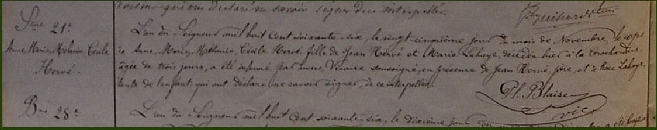 savoir signer de ce interpellés.
Sre 21e
Anne Marie Mélanie Cécile
Hervé
L'an du Seigneur mil huit cent soixante six, le vingt cinquième jour du mois de Novembre, le corps
de Anne Marie, Mélanie, Cécile Hervé, fille de Jean Hervé et Marie Lahaye, décédée hier à la
âgée de trois jours, a été inhumé par nous Vicaire soussigné, en présence de Jean Hervé, père, et de Rose Lahaye,
tante de l'enfant qui ont déclaré ne savoir signer, de ce interpellés.
Ph. Blaise
vic.
Bme 28e
L'an du Seigneur mil huit cent soixante six, le dixième jour du